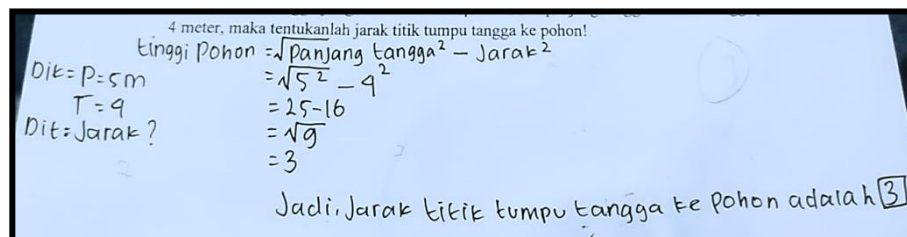 4 meter, maka tentukanlah jarak titik tumpu tangga ke pohon!
tinggi Pohon = √Panjang tangga² - Jarak²
Dik = P = 5m
= √5² - 4²
T = 4
= 25 - 16
Dit = Jarak ?
= √9
= 3
Jadi, Jarak titik tumpu tangga ke Pohon adalah 3